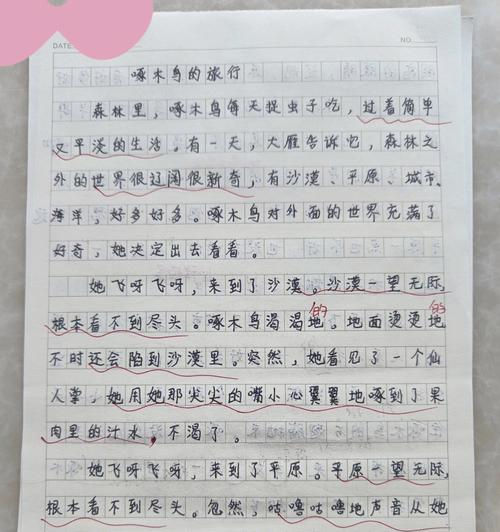 DATE
NO
啄木鸟的旅行
森林里，啄木鸟每天捉虫子吃，过着简单
又平淡的生活。有一天，大雁告诉它，森林之
外的世界很辽阔很新奇，有沙漠、平原、城市、
海洋，好多好多。啄木鸟对外面的世界充满了
好奇，她决定出去看看。
她飞呀飞呀，来到了沙漠。沙漠一望无际，
的 的
根本看不到尽头。啄木鸟渴渴地。地面烫烫地
不时还会陷到沙漠里。突然，她看见了一个仙
人掌，她用她那尖尖的嘴小心翼翼地啄到了果
肉里的汁水，不渴了。
她飞呀飞呀，来到了平原。平原一望无际，
根本看不到尽头。忽然，咕噜咕噜地声音从她